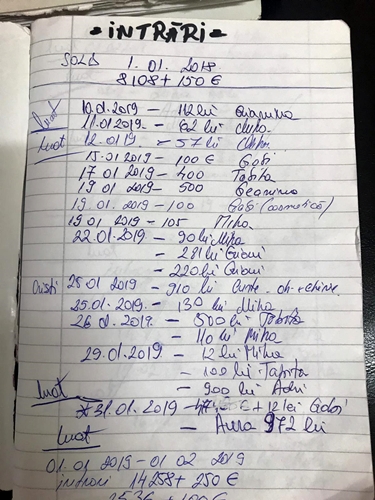 - INTRĂRI -
SOLD 1.01.2018
8108 + 150 €
10.01.2019 - 112 lei
luat 11.01.2019 - 62 lei
luat 12.01.19 - 57 lei
15.01.2019 - 100 € Gabi
17 01 2019 - 400 Tabita
19 01 2019 - 500 Geanina
19.01 2019 - 100 Gabi (cosmetică)
19 01 2019 - 105 Miha
22.01.2019 - 90 lei Miha
- 281 lei
- 220 lei
Cristi 25 01 2019 - 910 lei
25.01.2019 - 130 lei Miha
26 01.2019 - 500 lei Tabita
- 110 lei Miha
29.01.2019 - 12 lei Miha
- 100 lei Tabita
- 900 lei Adri
luat * 31.01.2019 - € + 12 lei Gabi
luat - Aura 972 lei
01.01 2019 - 01 02 2019
intrări 14258 + 250 €